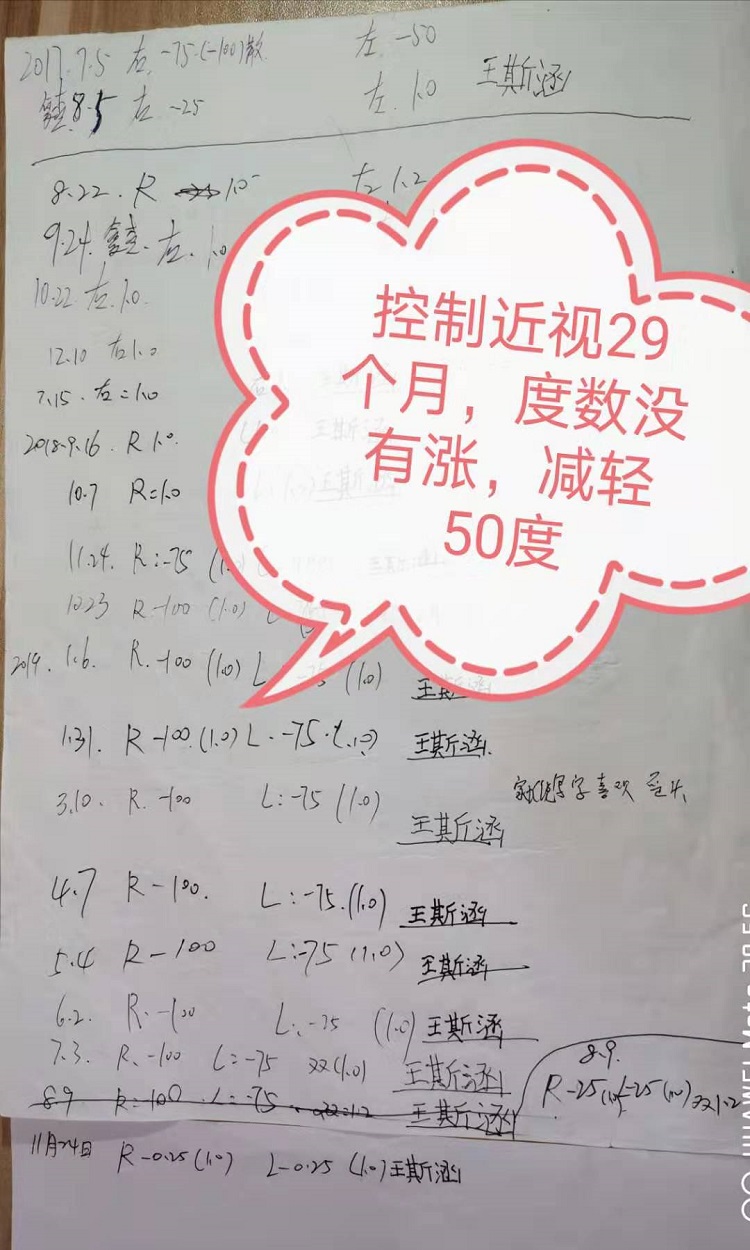 2017.7.5 右.-75.(-100)散 左.-50
8.5 右 -25 左.1.0 王斯涵
8.22. R 1.0- 左1.2
9.24. 右.1.0
10.22.右.1.0.
12.10 右1.0
7.15.右=1.0
2018.9.16. R 1.0.
10.7 R=1.0
11.24. R:-75 (1.0)
12.23 R-100 (1.0) L
2019. 1.6. R.-100 (1.0) L -75 (1.0) 王斯涵
1.31. R-100.(1.0) L.-75.(1.0) 王斯涵
3.10. R.-100 L:-75 (1.0) 王斯涵
写字喜欢
4.7 R-100. L:-75.(1.0) 王斯涵
5.4 R-100 L:-75 (1.0) 王斯涵
6.2. R.-100 L:-75 (1.0) 王斯涵
7.3. R.-100 L=-75 双(1.0) 王斯涵
8.9 R=-100 L:-75. 双=1.2 王斯涵
8.9.
R-25(1.0) L-25(1.0)双1.2
11月24日 R-0.25(1.0) L-0.25 (1.0)王斯涵
控制近视29
个月，度数没
有涨，减轻
50度